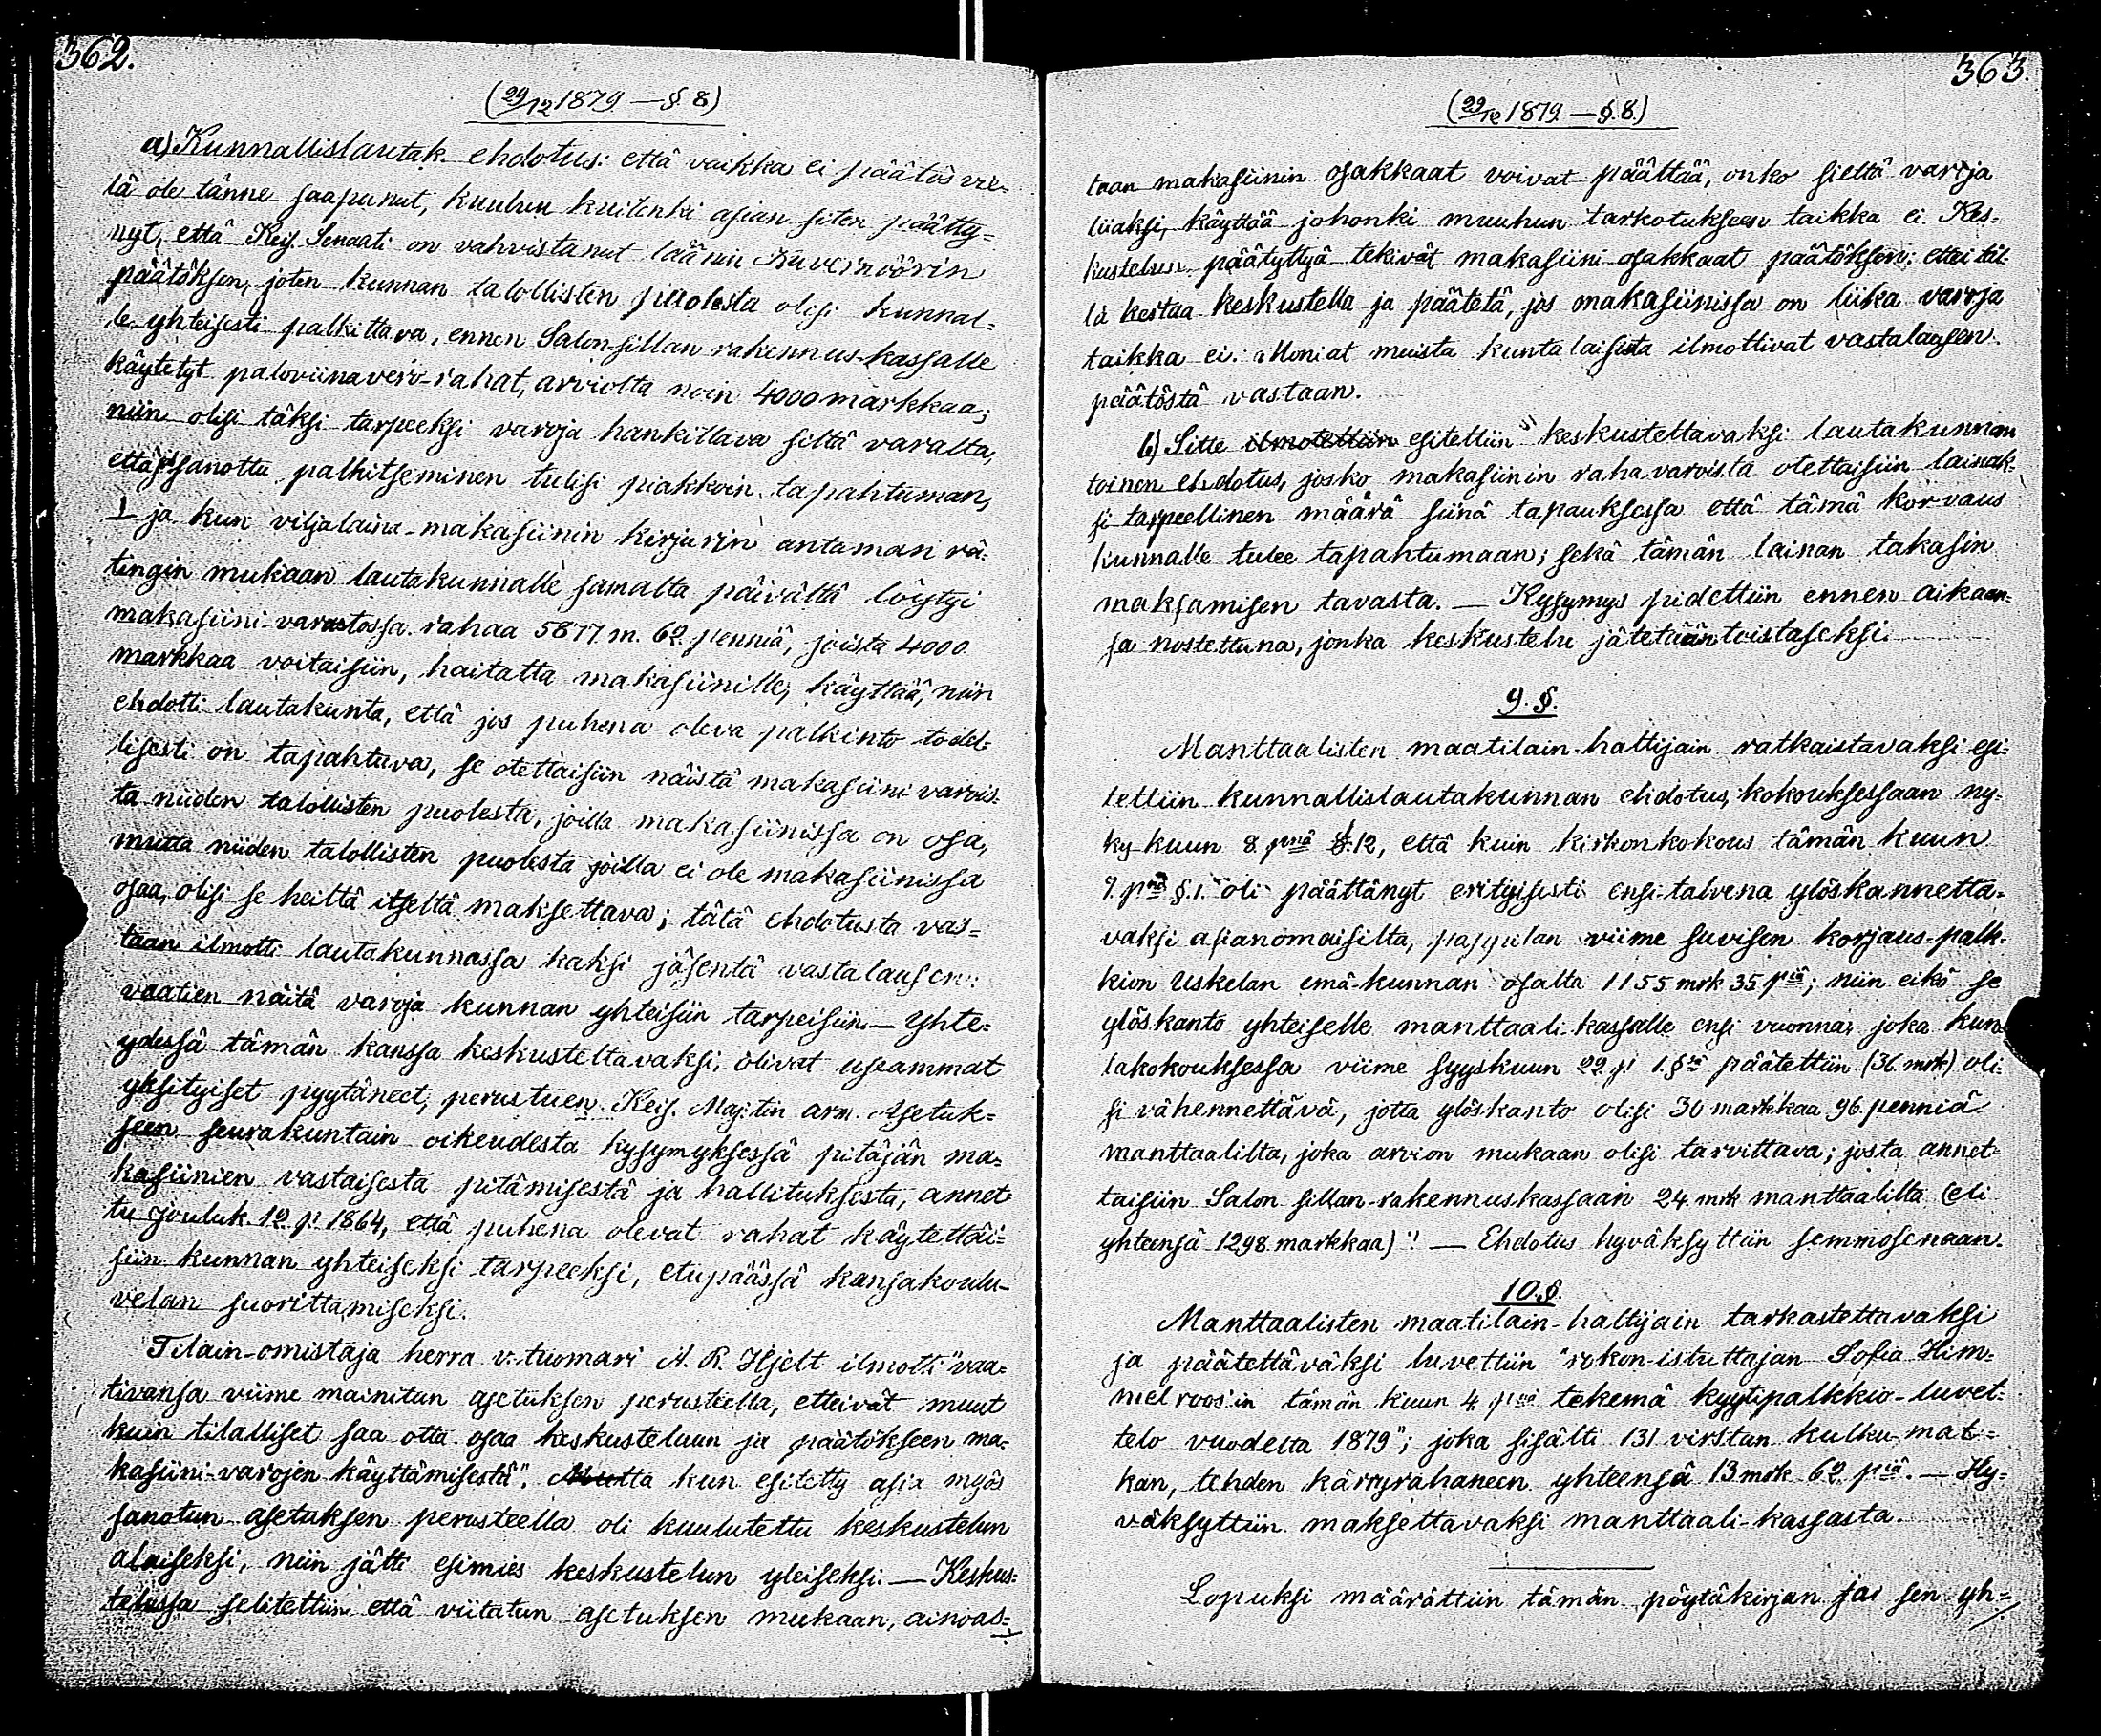 362.
(29/12 1879 — § 8)
a) Kunnallislautak. ehdotus: että vaikka ei päätös vie-
lä ole tänne saapunut, kuuluu kuitenki asian siten päätty-
nyt, että Keis. Senaati on vahvistanut läänin Kuvernöörin
päätöksen, joten kunnan talollisten puolesta olisi kunnal-
le yhteisesti palkittava, ennen Salon-sillan rakennus-kassalle
käytetyt paloviinavero-rahat, arviolta noin 4000 markkaa;
niin olisi täksi tarpeeksi varoja hankittava siltä varalta,
että sanottu palkitseminen tulisi piakkoin tapahtuman,
⊥ ja kun viljalaina-makasiinin kirjurin antaman rä-
tingin mukaan lautakunnalle samalta päivältä löytyi
makasiini-varastossa rahaa 5877 m. 62 penniä, joista 4000
markkaa voitaisiin, haitatta makasiinille, käyttää, niin
ehdotti lautakunta, että jos puhena oleva palkinto todel-
lisesti on tapahtuva, se otettaisiin näistä makasiini varois-
ta niiden talollisten puolesta, joilla makasiinissa on osa,
mutta niiden talollisten puolesta joilla ei ole makasiinissa
osaa, olisi se heiltä itseltä maksettava; tätä ehdotusta vas-
taan ilmotti lautakunnassa kaksi jäsentä vastalausen:
vaatien näitä varoja kunnan yhteisiin tarpeisiin. — Yhte-
ydessä tämän kanssa keskusteltavaksi, olivat useammat
yksityiset pyytäneet, perustuen Keis. Maj:tin arm. Asetuk-
seen seurakuntain oikeudesta kysymyksessä pitäjän ma-
kasiinien vastaisesta pitämisestä ja hallituksesta, annet-
tu Jouluk. 12 p: 1864, että puhena olevat rahat käytettäi-
siin kunnan yhteiseksi tarpeeksi, etupäässä kansakoulu-
velan suorittamiseksi.
Tilain-omistaja herra v. tuomari A. R. Hjelt ilmotti "vaa-
tivansa viime mainitun asetuksen perusteella, etteivät muut
kuin tilalliset saa otta osaa keskusteluun ja päätökseen ma-
kasiini-varojen käyttämisestä". Mutta kun esitetty asia myös
sanotun asetuksen perusteella oli kuulutettu keskustelun
alaiseksi, niin jätti esimies keskustelun yleiseksi. — Keskus-
telussa selitettiin että viitatun asetuksen mukaan, ainoas-
363.
(29/12 1879 — § 8.)
taan makasiinin osakkaat voivat päättää, onko sieltä varoja
liiaksi, käyttää johonki muuhun tarkotukseen taikka ei. Kes-
kustelun päätyttyä tekivät makasiini osakkaat päätöksen: ettei täl-
lä kertaa keskustella ja päätetä, jos makasiinissa on liika varoja
taikka ei. Moniat muista kuntalaisista ilmottivat vastalausen
päätöstä vastaan.
b) Sitte ilmotettiin esitettiin keskusteltavaksi lautakunnan
toinen ehdotus, josko makasiinin rahavaroista otettaisiin lainak-
si tarpeellinen määrä siinä tapauksessa että tämä korvaus
kunnalle tulee tapahtumaan; sekä tämän lainan takasin
maksamisen tavasta. — Kysymys pidettiin ennen aikaan-
sa nostettuna, jonka keskustelu jätetään toistaseksi.
9. §.
Manttaalisten maatilain-haltijain ratkaistavaksi esi-
tettiin kunnallislautakunnan ehdotus, kokouksessaan ny-
ky kuun 8 pnä §. 12, että kuin kirkonkokous tämän kuun
7. pnä §. 1. oli päättänyt erityisesti ensi-talvena ylöskannetta-
vaksi asianomaisilta, pappilan viime suvisen korjaus-palk-
kion Uskelan emä-kunnan osalta 1155 mrk 35 piä; niin eikö se
ylöskanto yhteiselle manttaali-kassalle ensi vuonna, joka kun-
takokouksessa viime syyskuun 29 p: 1. §sä päätettiin (36 mrk) oli-
si vähennettävä, jotta ylöskanto olisi 30 markkaa 96 penniä
manttaalilta, joka arvion mukaan olisi tarvittava; josta annet-
taisiin Salon sillan-rakennuskassaan 24 mrk manttaalilta (eli
yhteensä 1298 markkaa)". — Ehdotus hyväksyttiin semmosenaan.
10.§.
Manttaalisten maatilain-haltijain tarkastettavaksi
ja päätettäväksi luvettiin "rokon-istuttajan Sofia Him-
melroos'in tämän kuun 4 pnä tekemä kyytipalkkio-luvet-
telo vuodelta 1879"; joka sisälti 131 virstan kulku mat-
kan, tehden kärryrahaneen yhteensä 13 mrk 62 piä. — Hy-
väksyttiin maksettavaksi manttaali-kassasta.
Lopuksi määrättiin tämän pöytäkirjan jai sen yh-